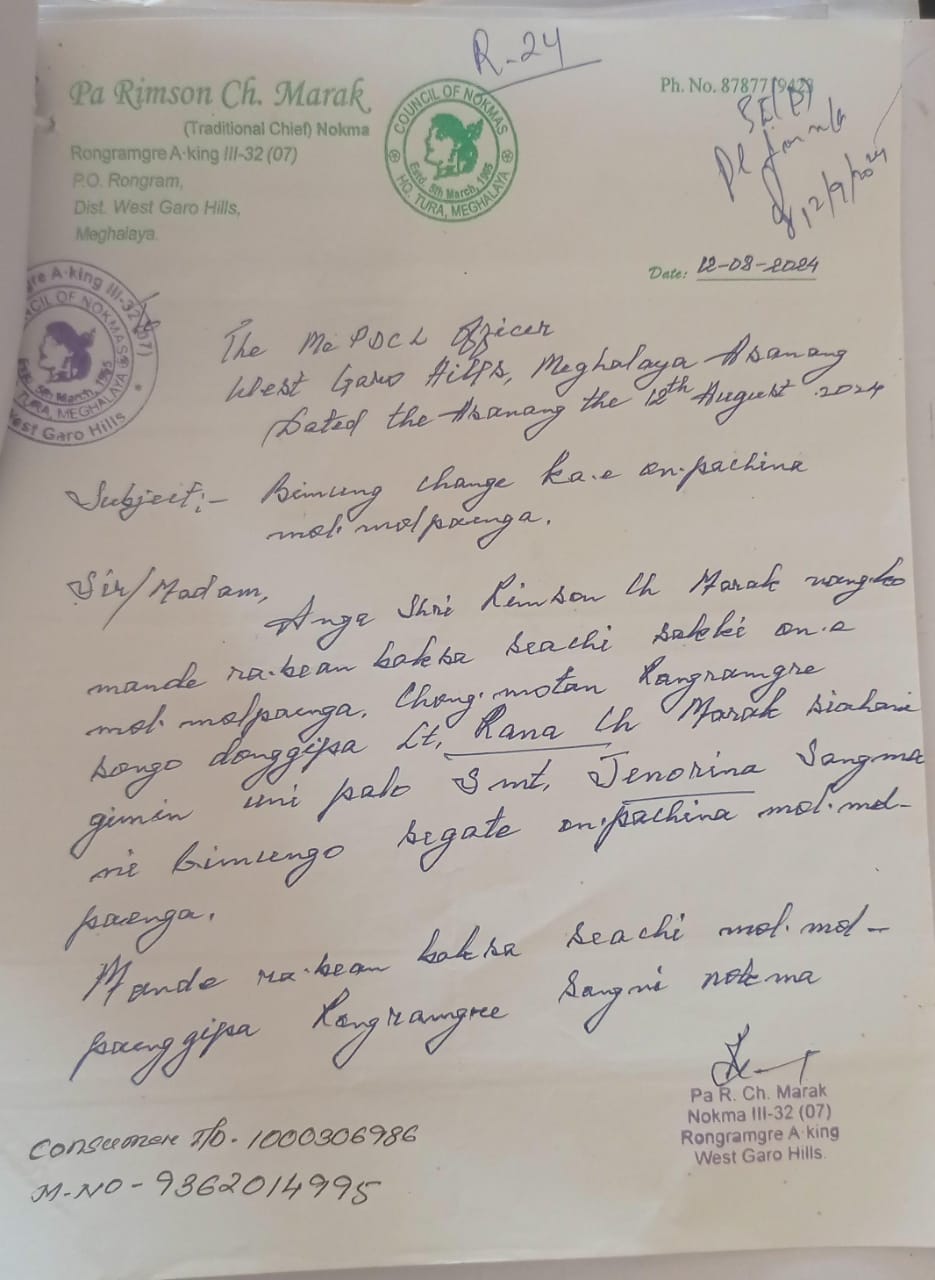 R-24
Pa Rimson Ch. Marak
(Traditional Chief) Nokma
Rongramgre A·king III-32 (07)
P.O. Rongram,
Dist. West Garo Hills,
Meghalaya.
COUNCIL OF NOKMAS
Estd. 8th March, 1965
HQ. TURA, MEGHALAYA
Ph. No. 8787719423
SE(D)
12/9/2024
Date: 12-08-2024
The MePDCL Officer
West Garo Hills, Meghalaya Asanang
Dated the Asanang the 12th August 2024
Subject:- Bimung change ka·e on·pachina
mol·molpaenga.
Sir/Madam,
Anga Shri Rimson Ch Marak nangko
mande ra·bean baksa seachi sakki on·e
mol·molpaenga. Chong·motan Rongramgre
songo donggipa Lt, Rana Ch Marak siahani
gimin uni palo Smt, Jenorina Sangma
ni bimungo segate on·pachina mol·mol-
paenga.
Mande ra·bean baksa seachi mol·mol-
paenggipa Rongramgre Songni nokma
Pa R. Ch. Marak
Nokma III-32 (07)
Rongramgre A·king
West Garo Hills.
Consumer I/D. 1000306986
M-NO - 9362014995